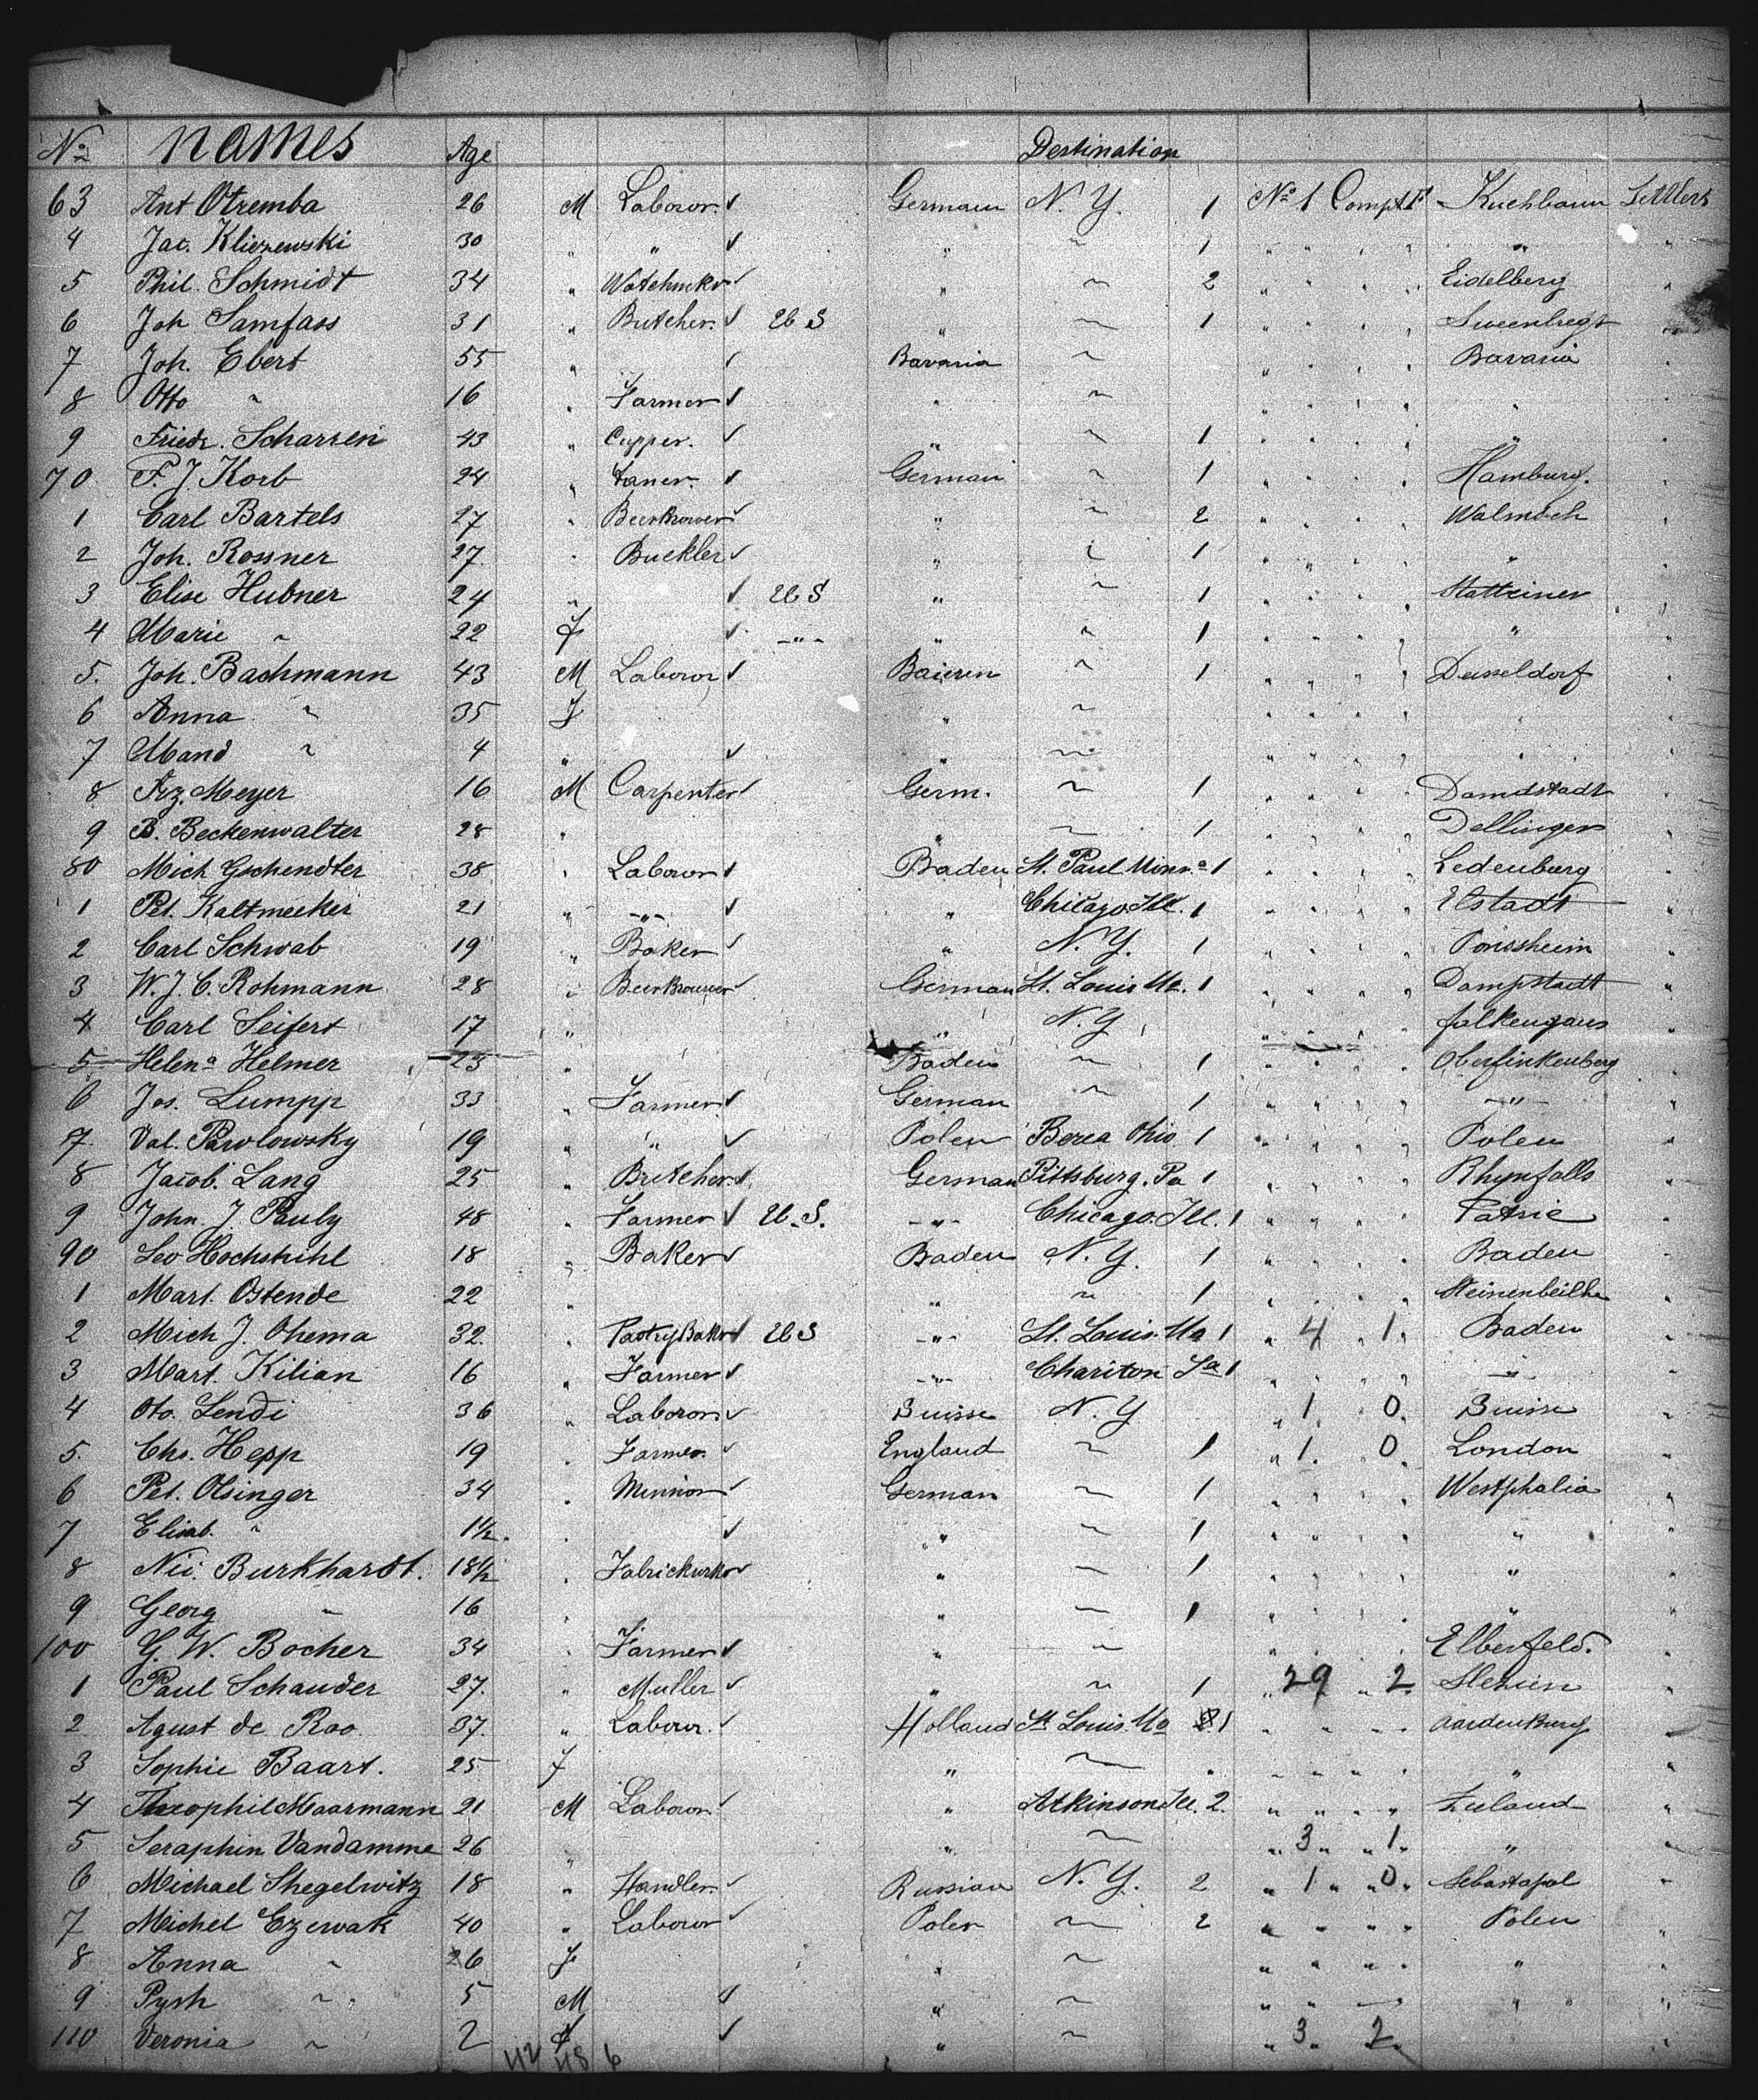 No names Age Destination
63 Ant Otremba 26 M Laboror. ✓ German N. Y. 1 No 1 Compt F Kuchbaun Settlers
4 Jac. Kliezewski 30 " " ✓ " ~ 1 " " " " " "
5 Phil. Schmidt 34 " Watchmkr ✓ " ~ 2 " " " " Eidelberg "
6 Joh Samfass 31 " Butcher. ✓ U S " ~ 1 " " " "
7 Joh. Ebert 55 " ✓ Bavaria ~ " " " " Bavaria "
8 Otto " 16 " Farmer ✓ " ~ " " " " " "
9 Friedr. Scharren 43 " Cupper. ✓ " ~ 1 " " " " " "
70 F. J. Korb 24 " taner. ✓ German ~ 1 " " " " Hamburg. "
1 Carl Bartels 27 " Beerbrower ✓ " ~ 2 " " " " Walmich "
2 Joh. Rossner 27. " Buckler ✓ " ~ 1 " " " " " "
3 Elise Hubner 24 " ✓ U S " ~ 1 " " " " Stattziner "
4 Marie " 22 F ✓ -"- " " 1 " " " " " "
5. Joh. Bachmann 43 M Laboror ✓ Baieren ~ 1 " " " " Dusseldorf "
6 Anna " 35 F " ~ " " " " " "
7 Mand " 4 " ✓ " ~ " " " " " "
8 Frz. Meyer 16 M Carpenter ✓ Germ. ~ 1 " " " " Damdstadt "
9 B. Beckenwalter 28 " " ~ 1 " " " " Dellinger "
80 Mich Gschendter 38 " Laboror ✓ Baden St. Paul Minna 1 " " " " Ledenburg "
1 Pet. Kaltmecker 21 " -"- ✓ " Chicago Ill. 1 " " " " Elstadt "
2 Carl Schwab 19 " Baker ✓ " N. Y. 1 " " " " Ponssheim "
3 W. J. C. Rohmann 28 " Beerbrouwer ✓ German St. Louis Mo. 1 " " " " Dampstadt "
4 Carl Seifert 17 " " N. Y. " " " " falkengaus "
5 Helena Helmer 23 " Baden ~ 1 " " " " Oberfinkenberg "
6 Jos. Lumpp 33 " Farmer ✓ German ~ 1 " " " " -"- "
7 Val. Pawlowsky 19 " " ✓ Polen Berea Ohio 1 " " " " Polen "
8 Jacob. Lang 25 " Butcher. ✓ German Pittsburg. Pa 1 " " " " Rhynfalls "
9 John. J. Pauly 48 " Farmer ✓ U. S. -"- Chicago. Ill. 1 " " " " Patrie "
90 Leo Hochstuhl 18 " Baker ✓ Baden N. Y. 1 " " " " Baden "
1 Mart. Ostende 22 " " ~ 1 " " " "
2 Mich J. Ohema 32. " Pastry Baker ✓ U S -"- St. Louis. Mo 1 " 4 " 1 " Baden "
3 Mart. Kilian 16 " Farmer ✓ -"- Chariton Ia 1 " " " " -"- "
4 Oto. Lendi 36 " Laboror ✓ Suisse N. Y " 1 0. Suisse "
5. Chs. Hepp 19 " Farmer. ✓ England ~ 1 " 1. 0. London "
6 Pet. Olsinger 34 " Minnior ✓ German ~ 1 " " " " Westphalia "
7 Elisab. " 1 1/2. " ✓ " ~ 1 " " " " " "
8 Nic. Burkhardt. 18 1/2 " Fabrickwrkr ✓ " ~ 1 " " " " " "
9 Georg " 16 " " ~ 1 " " " " " "
100 G. W. Bocher 34 " Farmer ✓ " ~ " " " " Elberfeld. "
1 Paul Schauder 27. " Muller ✓ " ~ 1 " 29 " 2. "
2 Agust de Roo. 37. " Labour. ✓ Holland St Louis. Mo 1 " " " " Aardenburg "
3 Sophie Baart. 25 F " ~ " " " " " "
4 Theophil Maarmann 21 M Labour. ✓ " Atkinson Ill. 2. " " " " Zeeland "
5 Seraphin Vandamme 26 " " ~ " 3 " " 1 " " "
6 Michael Shegelwitz 18 " Handler. ✓ Russian N. Y. 2 " 1 " " 0 " Sebastapol "
7 Michel Czewak 40 " Laboror ✓ Polen ~ 2 " " " " Polen "
8 Anna " 26 F " ~ " " " " " "
9 Pysh " 5 M ✓ " ~ " " " " " "
110 Veronia " 2 F ✓ " ~ " 3 " 2. "
42 48 6